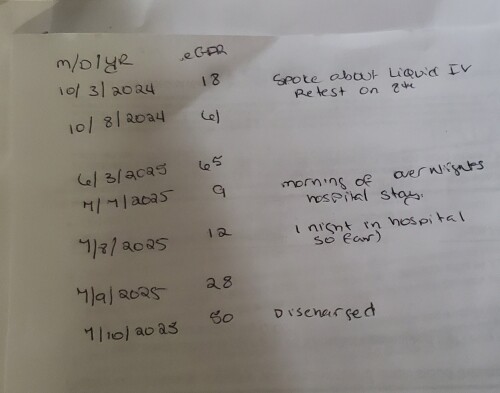 m/d/yR eGFR
10/3/2024 18 Spoke about Liquid IV
Retest on 8th
10/8/2024 61
6/3/2025 65
7/7/2025 9 morning of overnights
hospital stays.
7/8/2025 12 1 night in hospital
so far)
7/9/2025 28
7/10/2025 50 Discharged